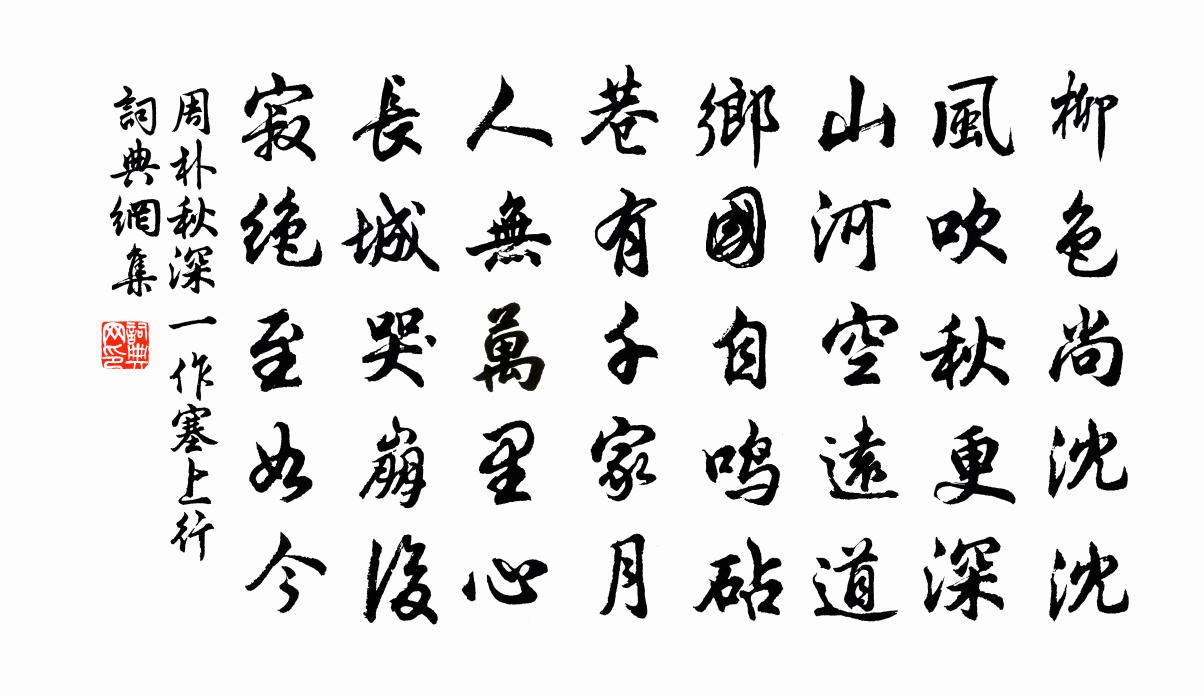 柳色尚沈沈
風吹秋更深
山河空遠道
鄉國自鸣砧
巷有千家月
人無萬里心
長城哭崩後
寂绝至如今
周朴秋深一作塞上行
詞典網集
詞典网印